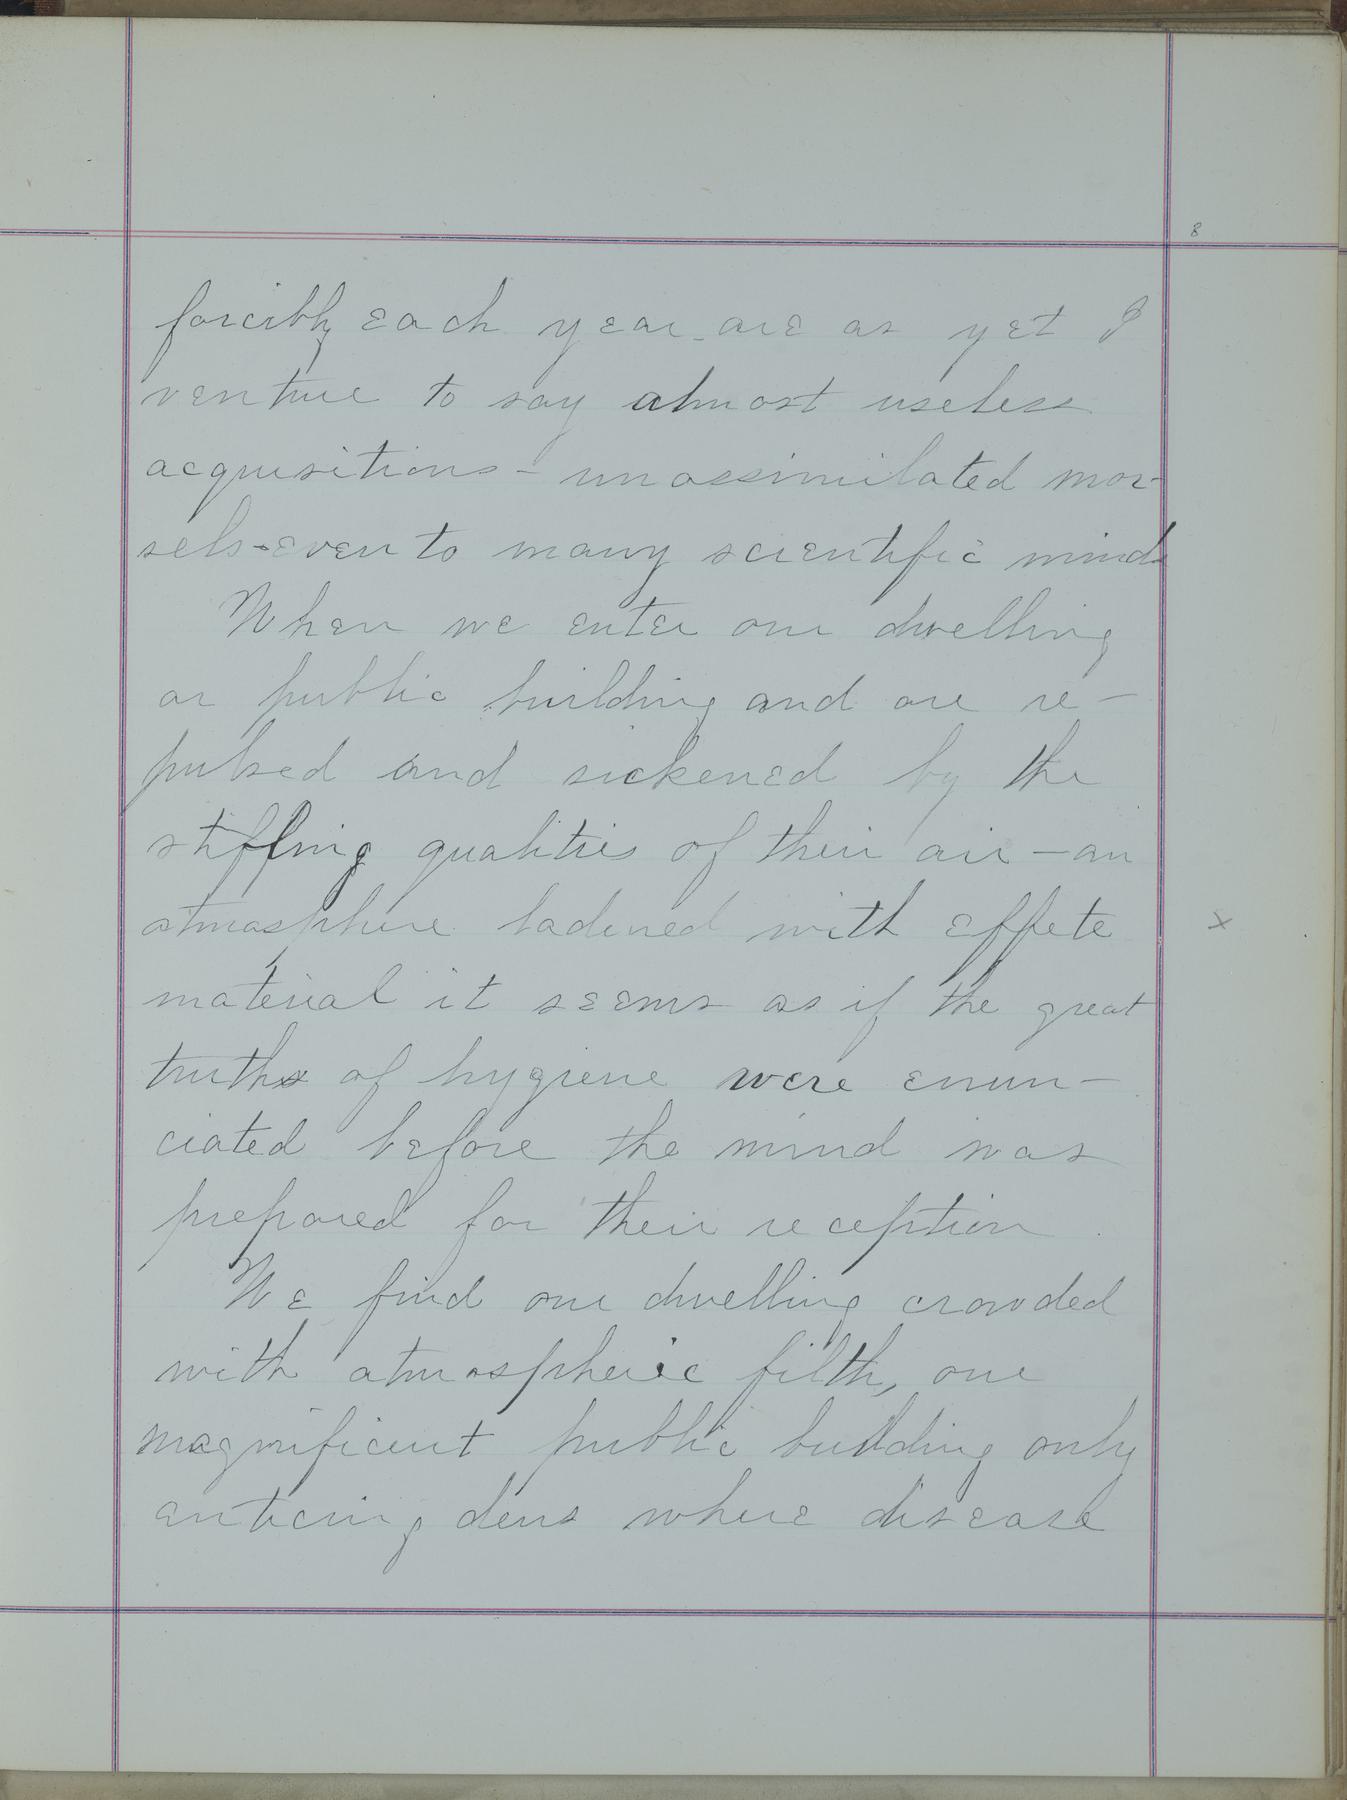 8
forcibly each year are as yet I
venture to say almost useless
acquisitions - unassimilated mor-
sels - even to many scientific minds
When we enter our dwelling
or public building and are re-
pulsed and sickened by the
stiffling qualities of their air - an
atmosphere ladened with effete
x
material it seems as if the great
truths of hygiene were enun-
ciated before the mind was
prepared for their reception.
We find our dwelling crowded
with atmospheric filth, our
magnificent public building only
anticing dens where disease